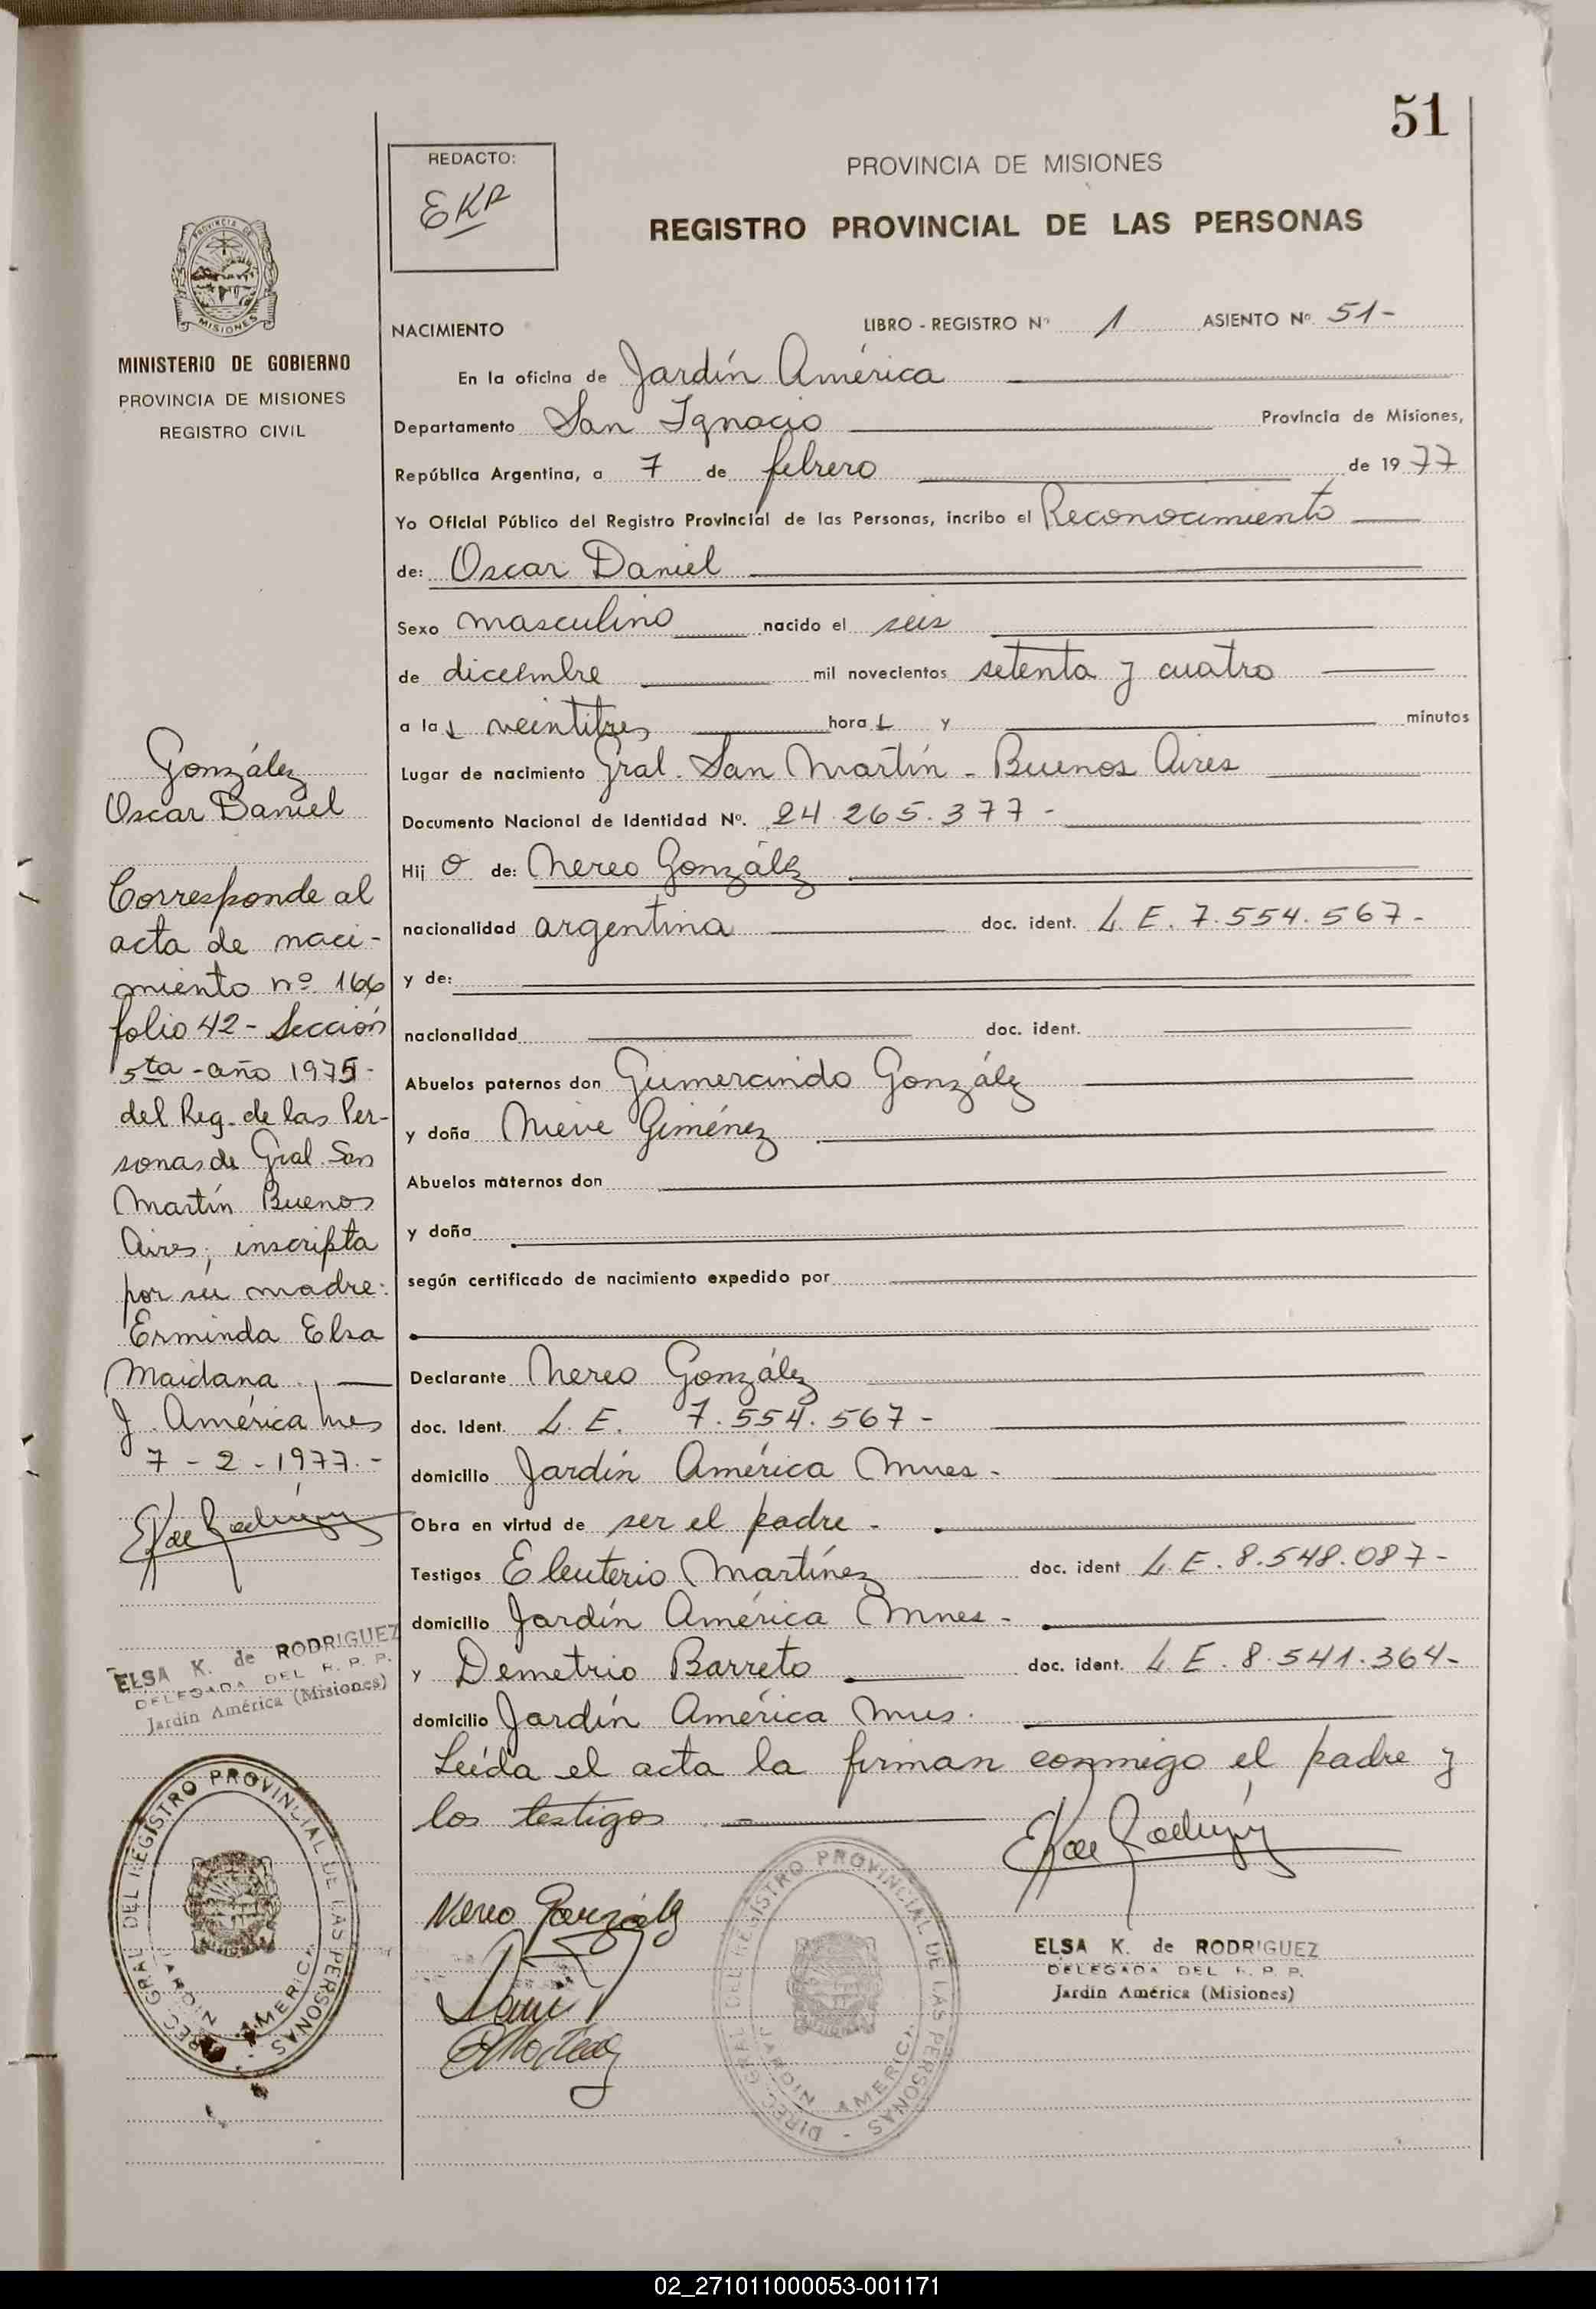 51
REDACTO:
EKR
PROVINCIA DE MISIONES
REGISTRO PROVINCIAL DE LAS PERSONAS
PROVINCIA DE
MISIONES
MINISTERIO DE GOBIERNO
PROVINCIA DE MISIONES
REGISTRO CIVIL
NACIMIENTO LIBRO - REGISTRO Nº 1 ASIENTO Nº 51-
En la oficina de Jardín América
Departamento San Ignacio Provincia de Misiones,
República Argentina, a 7 de febrero de 1977
Yo Oficial Público del Registro Provincial de las Personas, incribo el Reconocimiento
de: Oscar Daniel
Sexo masculino nacido el seis
de diciembre mil novecientos setenta y cuatro
a las veintitres horas y minutos
Lugar de nacimiento Gral. San Martín - Buenos Aires
Documento Nacional de Identidad Nº. 24.265.377-
Hijo de: Nereo González
nacionalidad argentina doc. ident. L.E. 7.554.567-
y de:
nacionalidad doc. ident.
Abuelos paternos don Gumercindo González
y doña Nieve Giménez
Abuelos maternos don
y doña
según certificado de nacimiento expedido por
Declarante Nereo González
doc. Ident. L.E. 7.554.567-
domicilio Jardín América Mnes-
Obra en virtud de ser el padre-
Testigos Eleuterio Martínez doc. ident L.E. 8.548.087-
domicilio Jardín América Mnes-
y Demetrio Barreto doc. ident. L.E. 8.541.364-
domicilio Jardín América Mnes.
Leída el acta la firman conmigo el padre y
los testigos
Nereo González
ELSA K. de RODRIGUEZ
DELEGADA DEL R. P. P.
Jardín América (Misiones)
DIREC GRAL DEL REGISTRO PROVINCIAL DE LAS PERSONAS -
JARDIN AMERICA
González
Oscar Daniel
Corresponde al
acta de naci-
miento nº 166
folio 42 - Sección
5ta - año 1975-
del Reg. de las Per-
sonas de Gral. San
Martín Buenos
Aires; inscripta
por su madre:
Erminda Elsa
Maidana.
J. América Mnes
7-2-1977.-
ELSA K. de RODRIGUEZ
DELEGADA DEL R. P. P.
Jardín América (Misiones)
DIREC GRAL DEL REGISTRO PROVINCIAL DE LAS PERSONAS -
JARDIN AMERICA
02_271011000053-001171